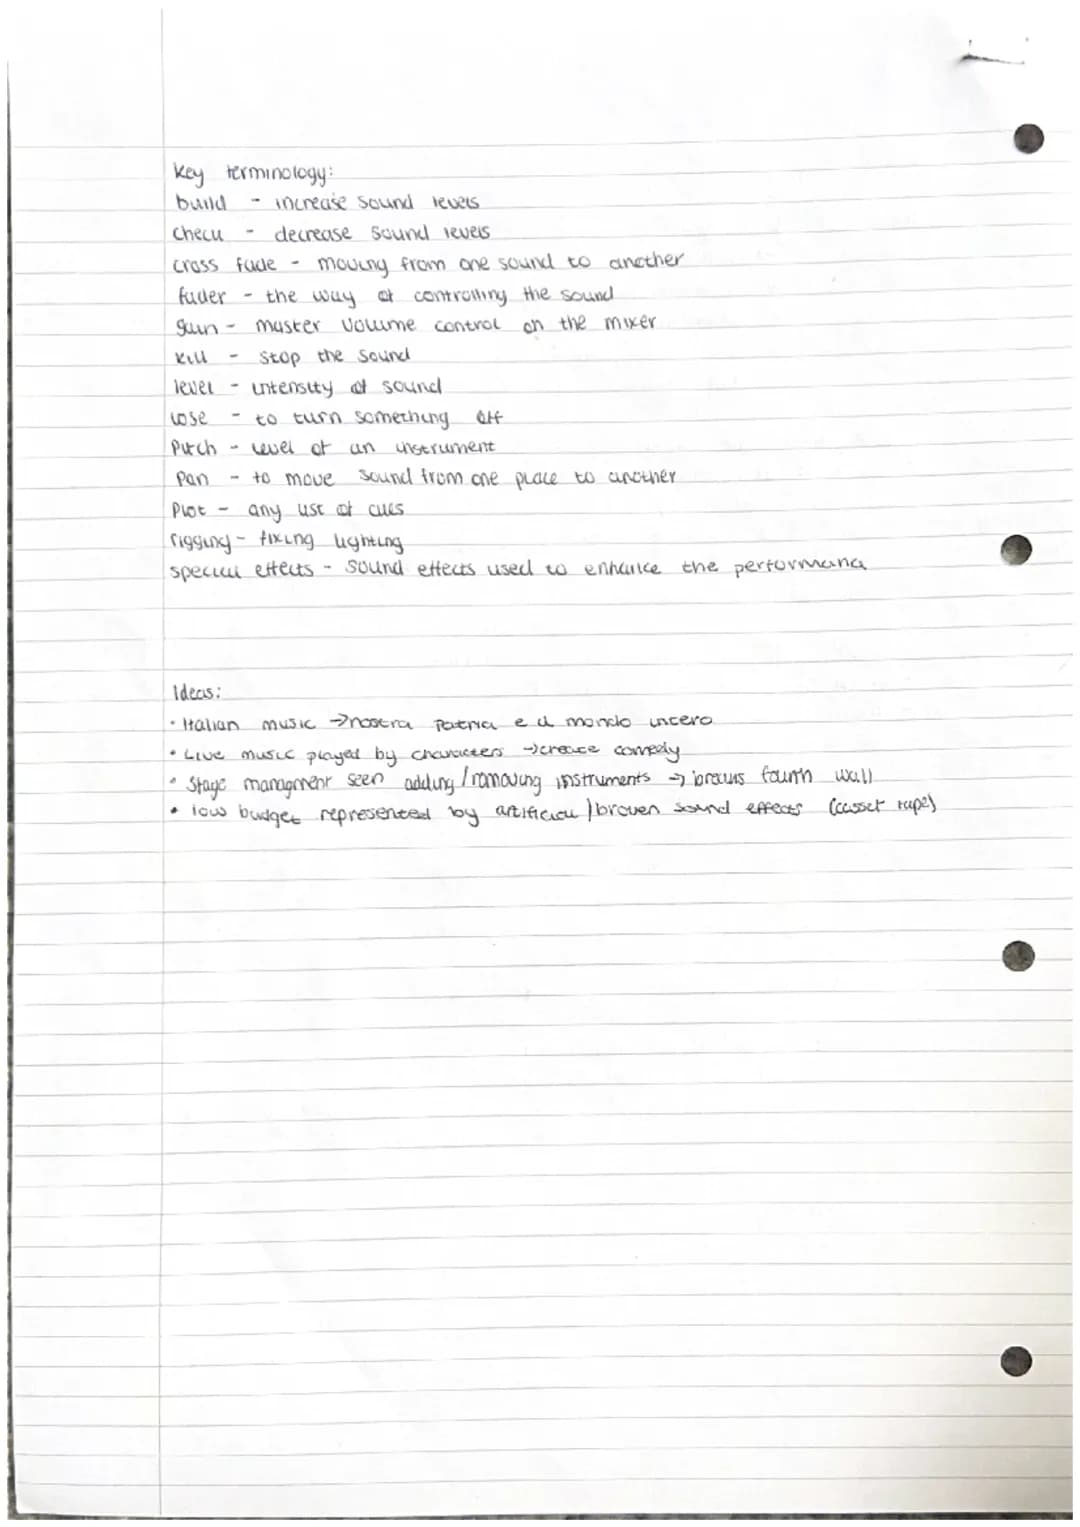 key terminology:
build - increase sound levels
check - decrease sound levels
cross fade - moving from one sound to another
fader - the way of controlling the sound
gain - master volume control on the mixer
kill - stop the sound
level - intensity of sound
lose - to turn something off
Pitch - level of an instrument
Pan - to move sound from one place to another
Plot - any use of cues
rigging - fixing lighting
special effects - sound effects used to enhance the performance
Ideas:
• Italian music → nostra patria e il mondo intero
• Live music played by characters → create comedy
• Stage managment seen adding/removing instruments → breaks fourth wall
• low budget represented by artificial/broken sound effects (casset tape)